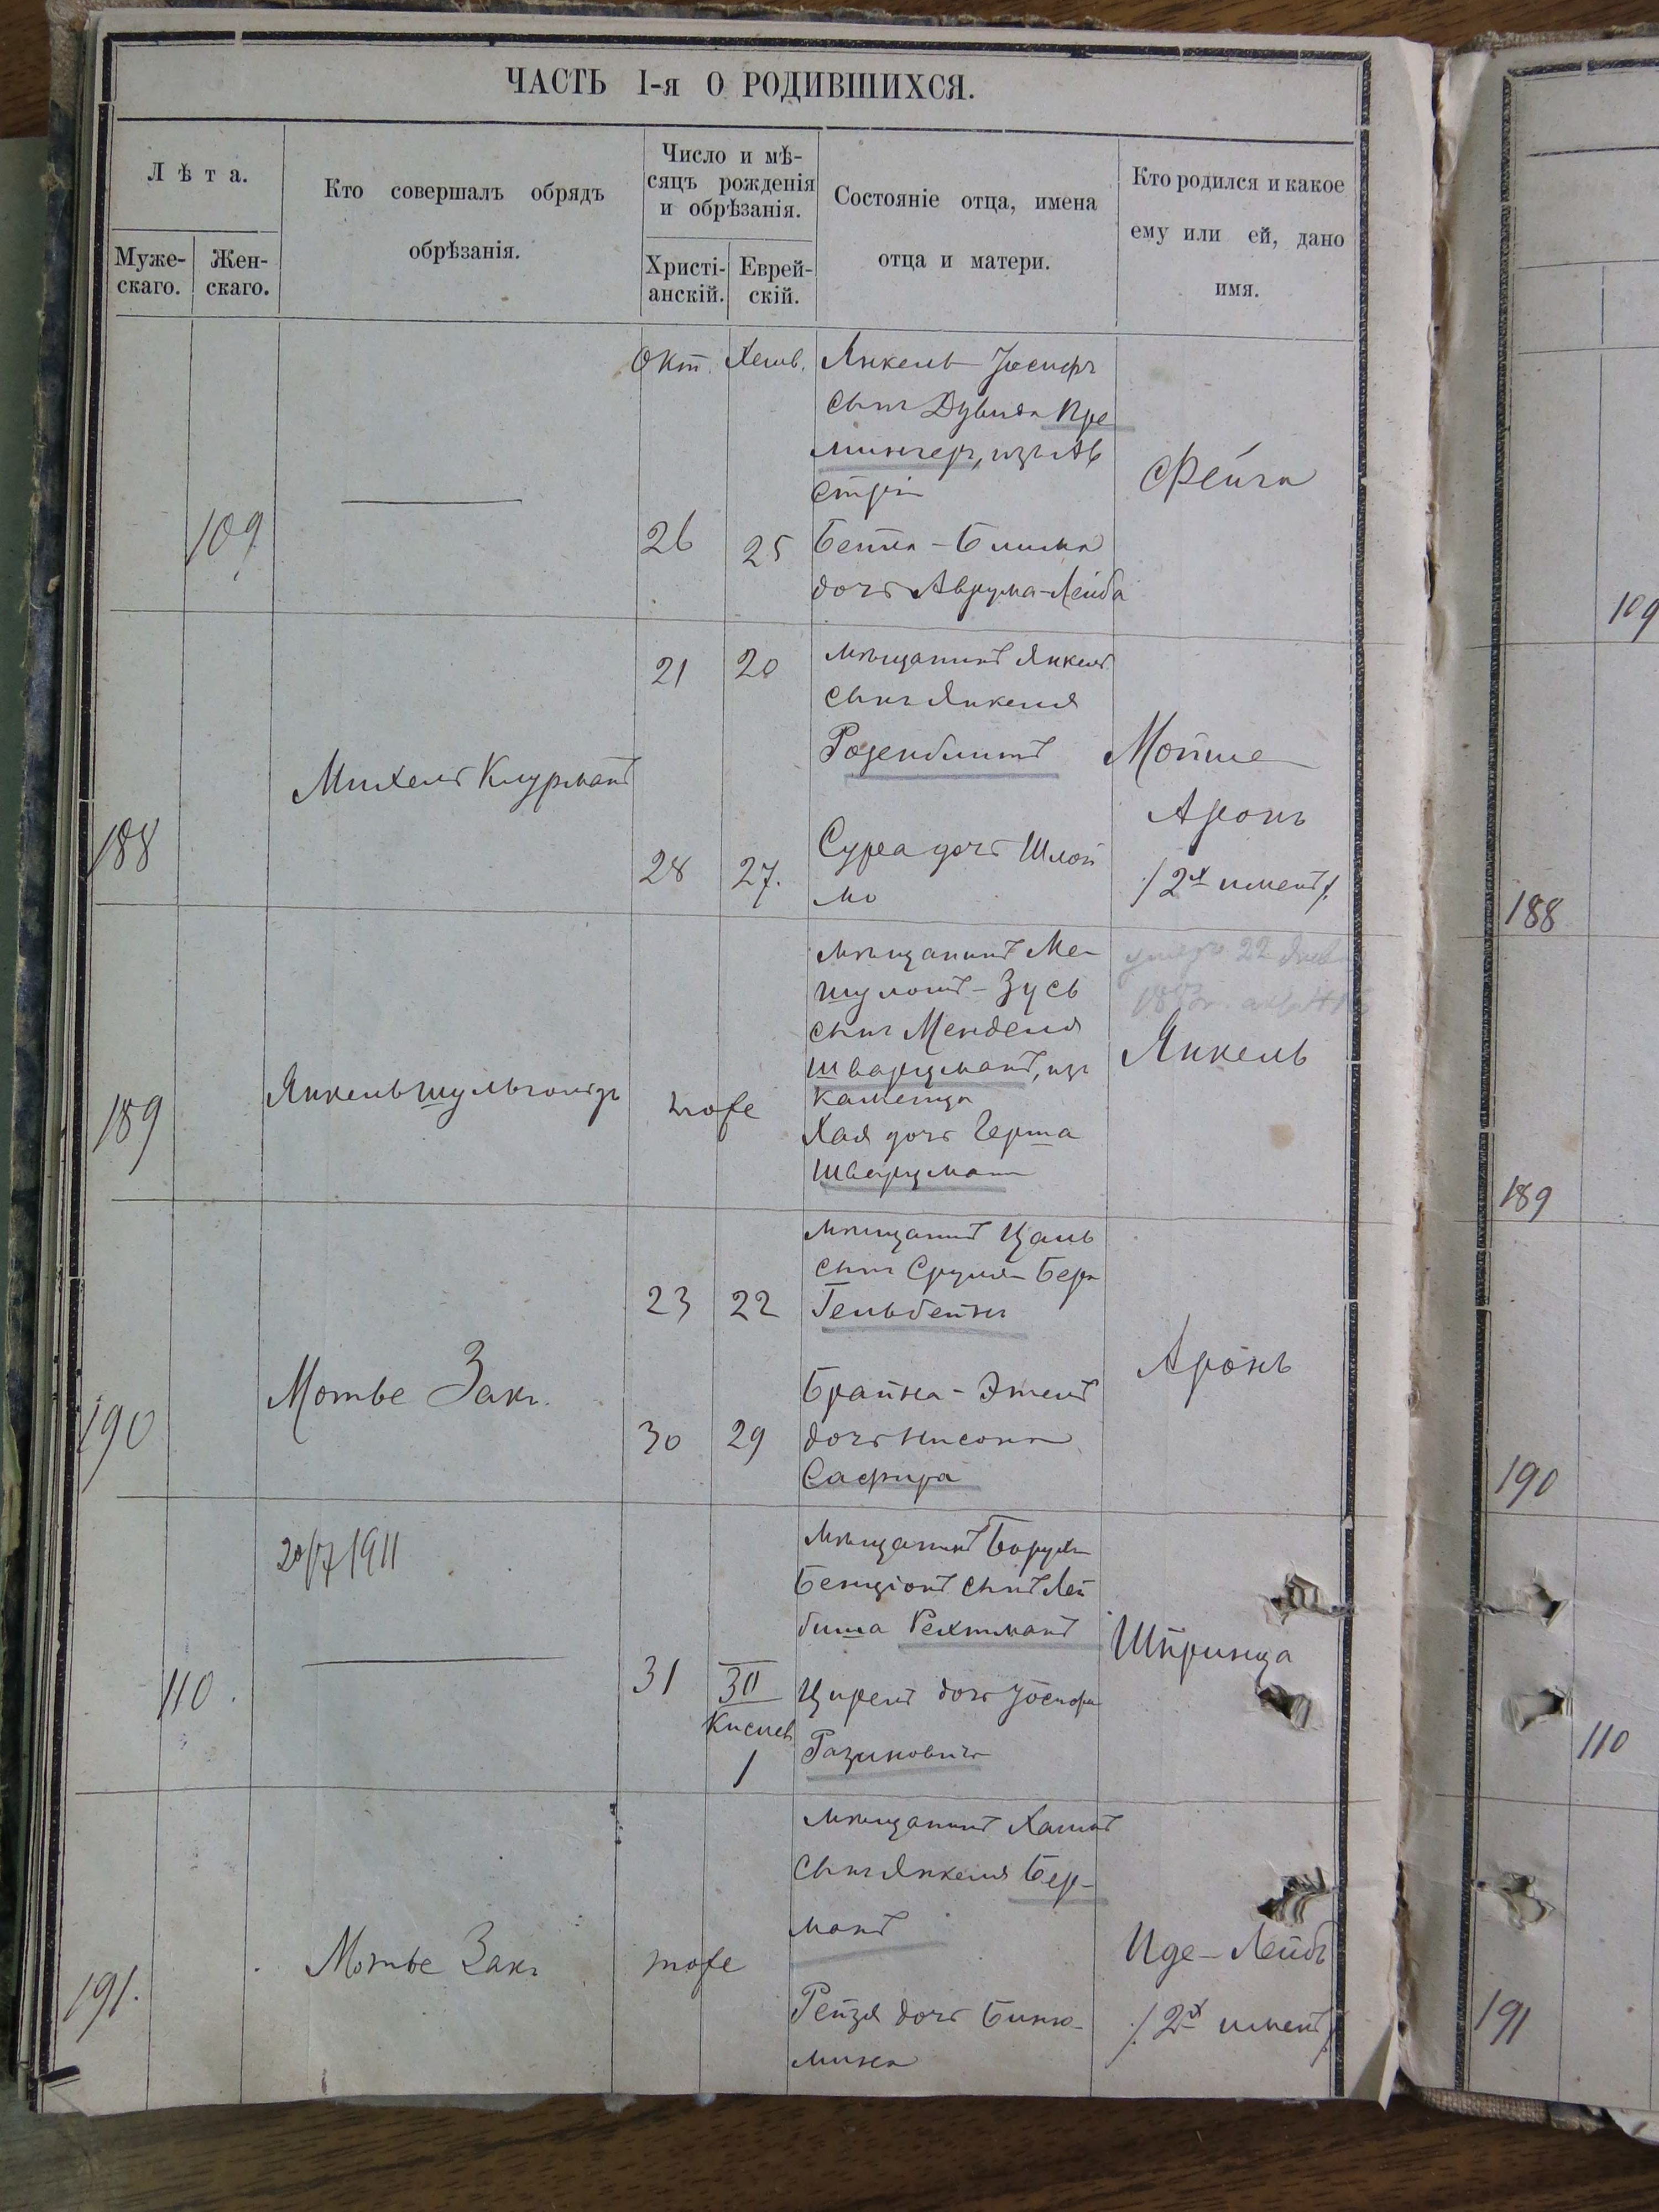 ЧАСТЬ I-я О РОДИВШИХСЯ.
Лѣта.
Муже-
скаго.
Жен-
скаго.
Кто совершалъ обрядъ
обрѣзанія.
Число и мѣ-
сяцъ рожденія
и обрѣзанія.
Христі-
анскій.
Еврей-
скій.
Состояніе отца, имена
отца и матери.
Кто родился и какое
ему или ей, дано
имя.
Окт. Хешв.
109
26 25
Янкель Іосифъ
сынъ Дувида Пре
мингеръ, изъ Ав
стріи
Бейла - Блима
дочь Аврума-Лейба
Фейга
109
188
Михель Клурманъ
21 20
28 27.
мѣщанинъ Янкель
сынъ Янкеля
Розенблитъ
Сура дочь Шлой
мо
Мойше
Аронъ
/2х именъ/.
188
189
Янкель
тоже
мѣщанинъ Ме-
шуломъ - Зусь
сынъ Менделя
Шварцманъ, изъ
Каменца
Хая дочь Герша
Шварцманъ
22
Янкель
189
190
Мотье Закъ.
23 22
30 29
мѣщанинъ Цаль
сынъ Сруля Бера
Гельбейнъ
Брайна - Этель
дочь Нисона
Сафира
Аронъ
190
20/7 1911
110.
31 30
Кислев
1
мѣщанинъ Борух
Бенціонъ сынъ Лей
биша Рехтманъ
Цирель дочь Іосифа
Шпринца
110
191.
Мотье Закъ
тоже
мѣщанинъ Хаимъ
сынъ Янкеля Бер-
манъ
Рейзя дочь Биню-
мина
Иде - Лейбъ
/2х именъ/.
191